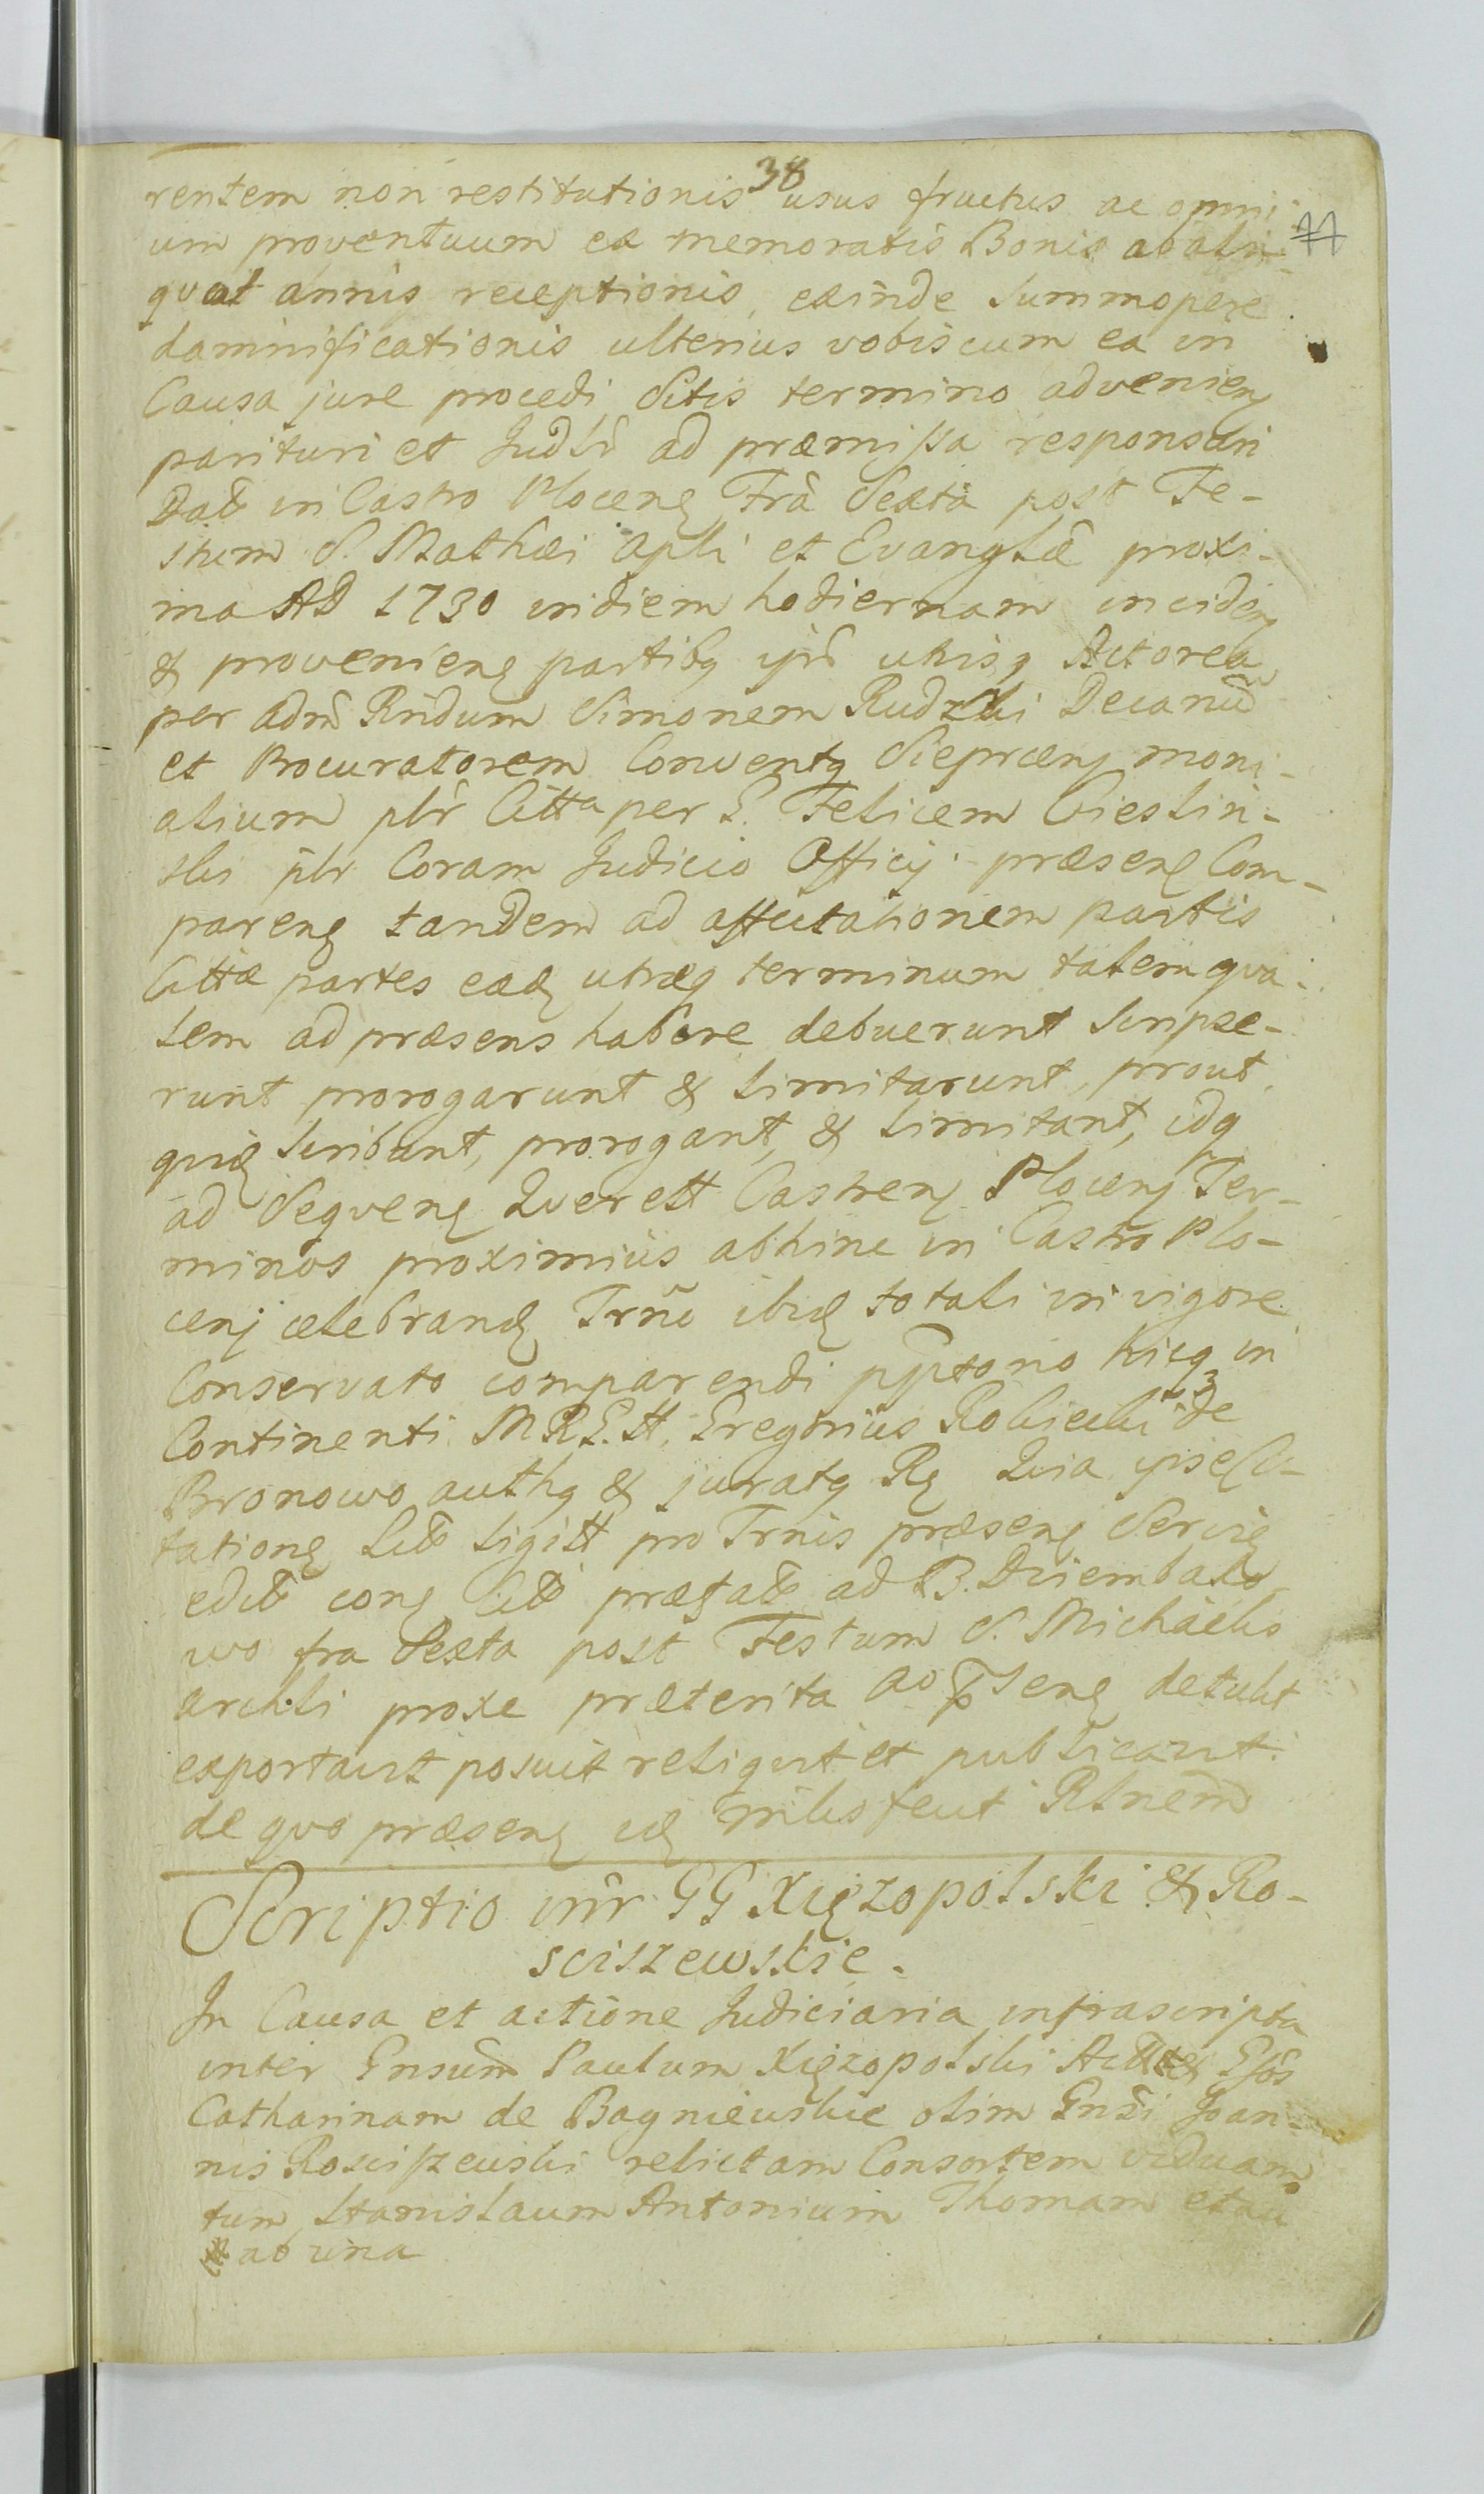 38
rentem non restitutionis usus fructus ac omni-
um proventuum ex memoratis Bonis ab ali-
quot annis receptionis, exinde summopere
damnificationis ulterius vobiscum ea in
Causa jure procedi Sitis termino advenien
parituri et Judlr ad præmissa responsuri
Dat in Castro Plocen Fra Sexta post Fe-
stum S. Mathæi Apli et Evanglæ proxi-
ma AD 1730 in diem hodiernam inciden
& provenien partibq ipis utrisq Actorea
per Adm Rndum Simonem Rudzki Decanum
et Procuratorem Conventq Sieprcen moni-
alium plr Citta per G. Felicem Cieslin-
ski plr Coram Judicio Officij præsen Com-
paren tandem ad affectationem partis
Cittæ partes eæd utræq terminum talem qua-
lem ad præsens habere debuerunt scripse-
runt prorogarunt & limitarunt, prout
quid scribunt, prorogant, & limitant, idq
ad Sequen Querell Castren Plocen Ter-
minos proximius abhinc in Castro Plo-
cen celebrand Trnũ ibid totali in vigore
Conservato comparendi pptorio hicq in
Continenti MRGH. Gregorius Robiecki de
Bronowo authq & juratq Rg Quia ipse Ci-
tation Lit ligitt pro Trnis præsen Servi
edit con Cit prætat ad B. Dziembako
wo fra Sexta post Festum S. Michaelis
Archli proxe præterita Ao præsen detulit
exportavit posuit reliquit et publicavit.
de quo præsen id mlis fecit Rlnem
Scriptio inr GG Xięzopolski & Ro-
sciszewskie.
In Causa et actione Judiciaria infrascripta
inter Gnsum Paulum Xięzopolski Act & Gsos
Catharinam de Bagnieuskie olim Gnsi Joan-
nis Rosciszeuski relictam Consortem viduam
tum Stanislaum Antonium Thomam et au
ab una